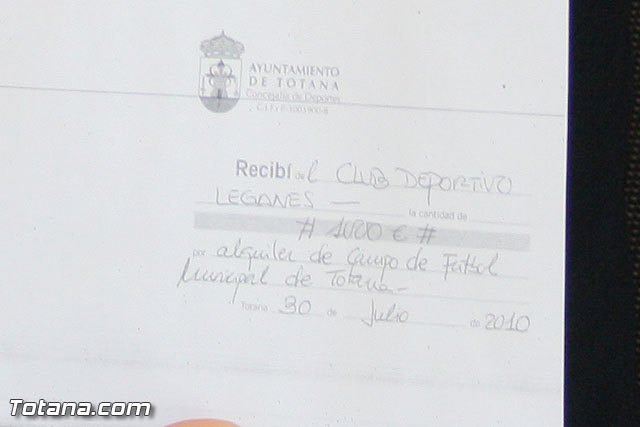 AYUNTAMIENTO
DE TOTANA
Concejalía de Deportes
Recibí del CLUB DEPORTIVO
LEGANES — la cantidad de
# €#
por alquiler de Campo de Futbol
Municipal de Totana-
Totana 30 de Julio de 2010
Totana.com